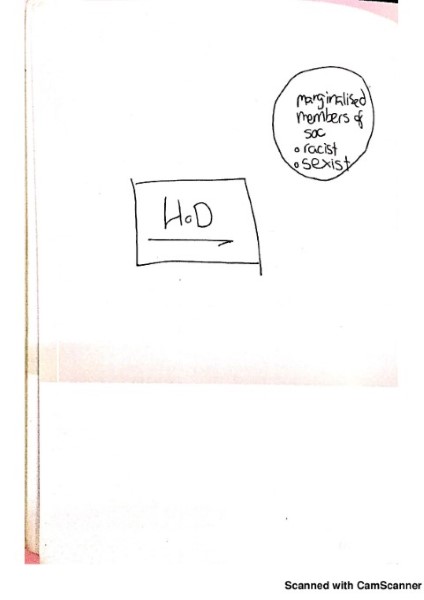 marginalised
members of
soc
• racist
• sexist
HoD
Scanned with CamScanner